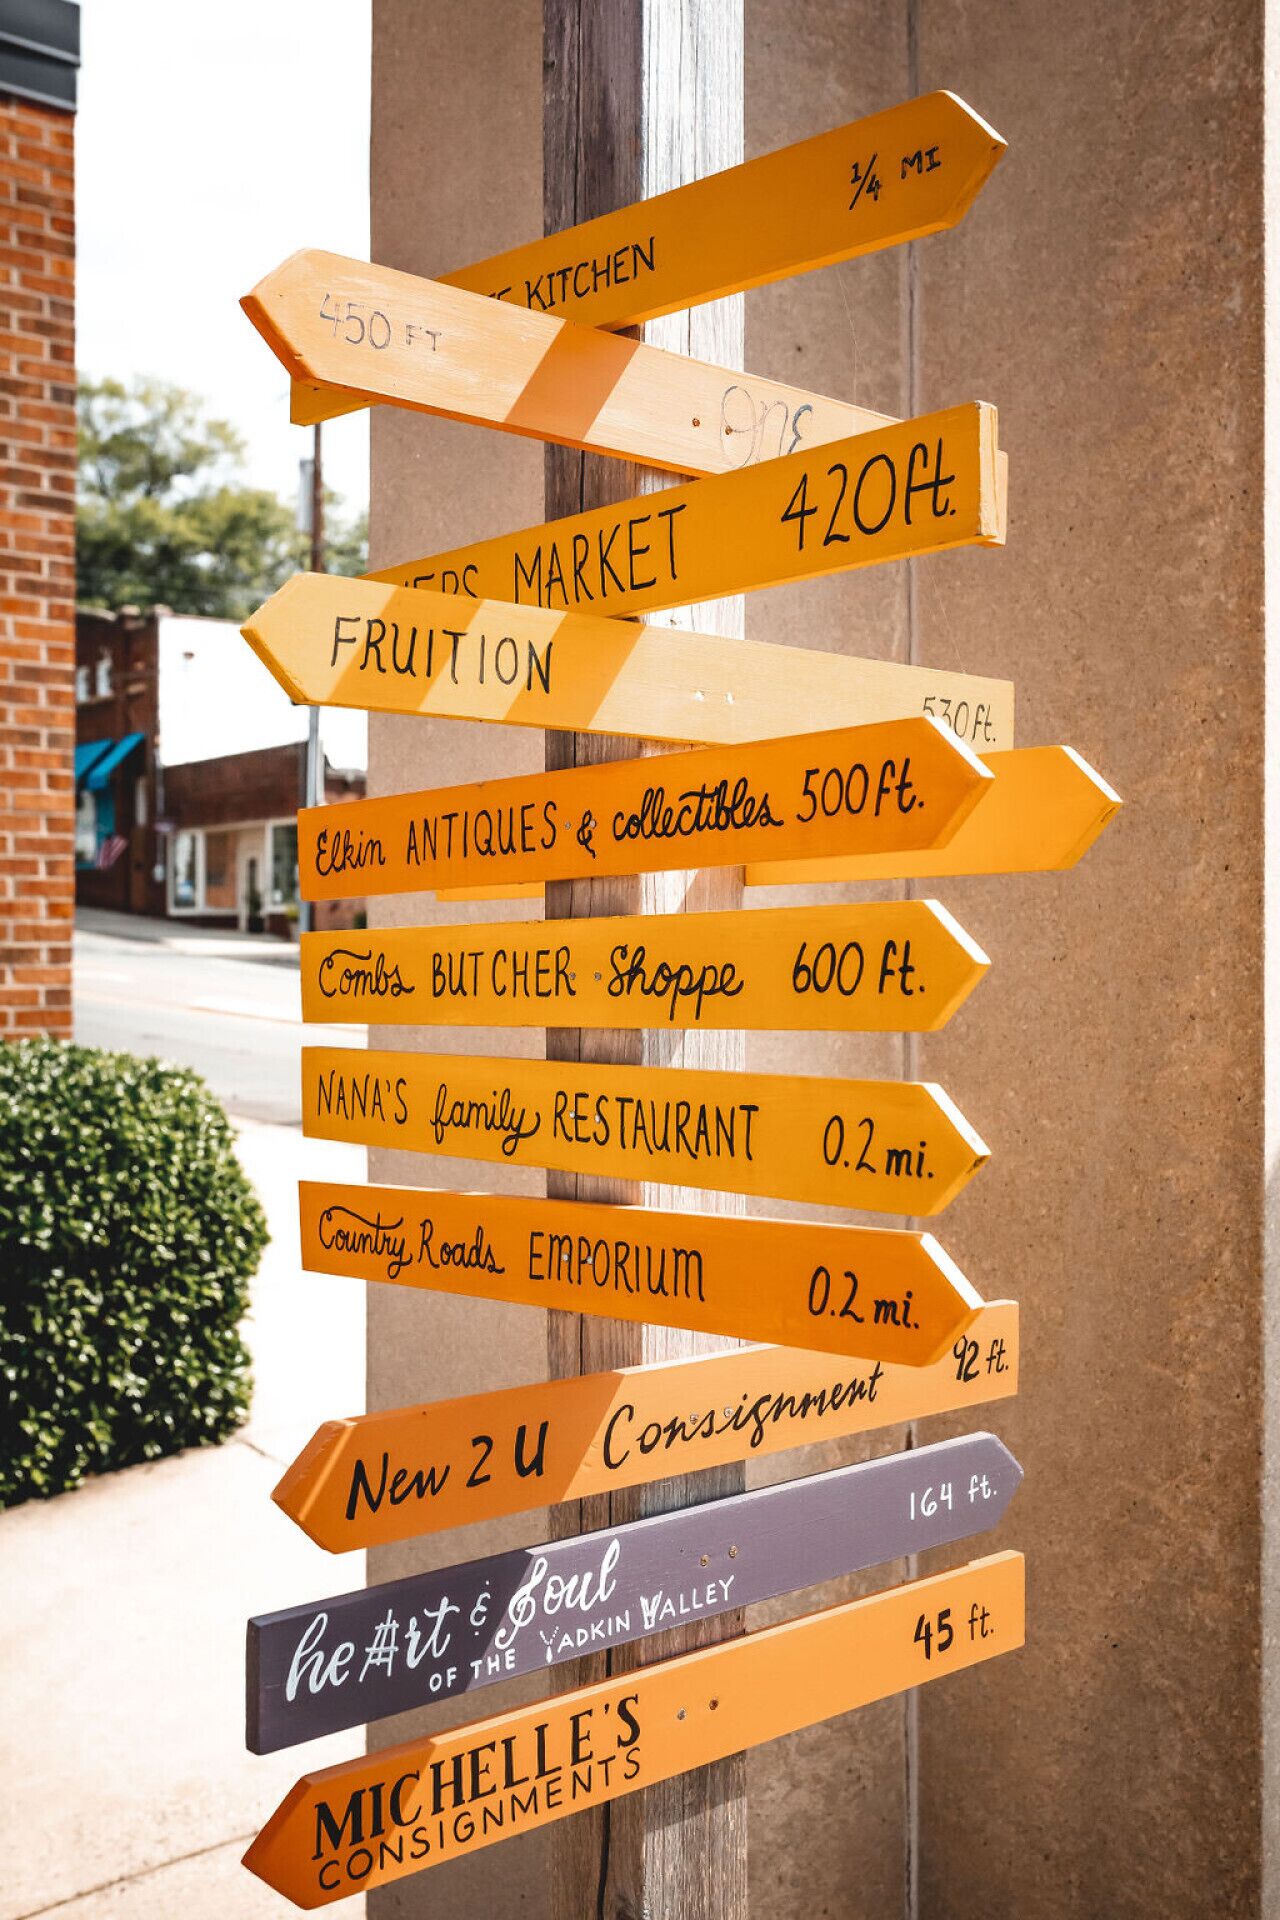 1/4 MI
KITCHEN
450 FT
ONE
MARKET 420ft.
FRUITION 530ft.
Elkin ANTIQUES & collectibles 500ft.
Combs BUTCHER Shoppe 600 ft.
NANA'S family RESTAURANT 0.2 mi.
Country Roads EMPORIUM 0.2 mi.
New 2 U Consignment 92 ft.
he#rt & Soul 164 ft.
OF THE YADKIN VALLEY
MICHELLE'S 45 ft.
CONSIGNMENTS